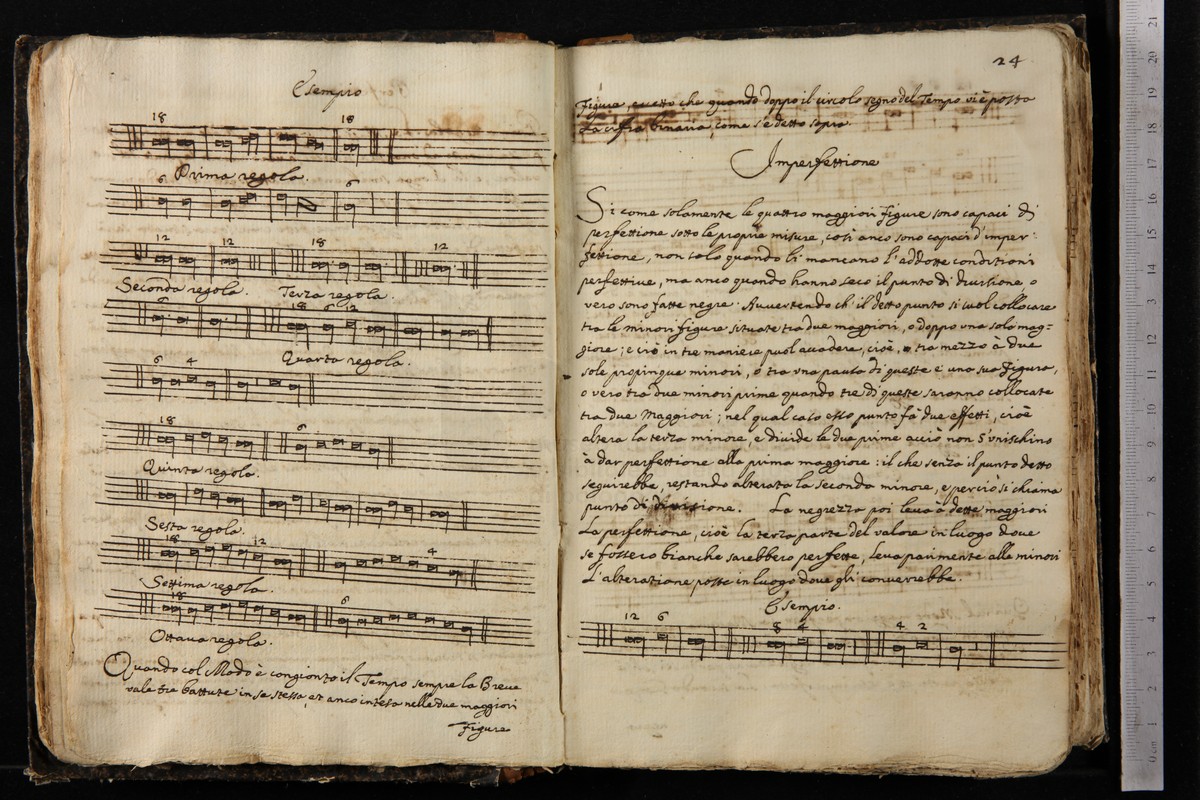 Esempio
18 18
Prima regola.
6 6
12 12 18 12
Seconda regola. Terza regola.
18 6 12
Quarta regola.
6 4
18 6
Quinta regola.
Sesta regola.
18 12 4
Settima regola.
18 6
Ottava regola.
Quando col Modo è congionto il Tempo sempre la Breve
vale tre battute in se stessa, et anco intesa nelle due maggiori
Figure
24
Figure, eccetto che quando doppo il circolo segno del Tempo vi è posta
La cifra binaria come s'è detto sopra.
Imperfettione
Si come solamente le quattro maggiori figure sono capaci di
perfettione sotto le proprie misure, così anco sono capaci d'imper:
fettione, non solo quando li mancano l'addotte conditioni
perfettive, ma anco quando hanno seco il punto di divisione, o
vero sono fatte negre. Avvertendo ch'il detto punto si suol collocare
tra le minori figure situate tra due maggiori, o doppo una sola mag=
giore; e ciò in tre maniere puol accadere, cioè, tra mezzo à due
sole propinque minori, o tra una pausa di queste e una sua figura,
o vero tra due minori prime quando tre di queste saranno collocate
tra due Maggiori; nel qual caso esso punto fà due effetti, cioè
altera la terza minore, e divide le due prime acciò non s'unischino
à dar perfettione alla prima maggiore: il che senza il punto detto
seguirebbe, restando alterata la seconda minore, e perciò si chiama
punto di divisione. La negrezza poi leva à dette maggiori
La perfettione, cioè la terza parte del valore in luogo dove
se fossero bianche sarebbero perfette, leva parimente alle minori
L'alteratione poste in luogo dove gli converrebbe.
Esempio.
12 6 8 4 4 2
21 20 19 18 17 16 15 14 13 12 11 10 9 8 7 6 5 4 3 2 1 0 cm